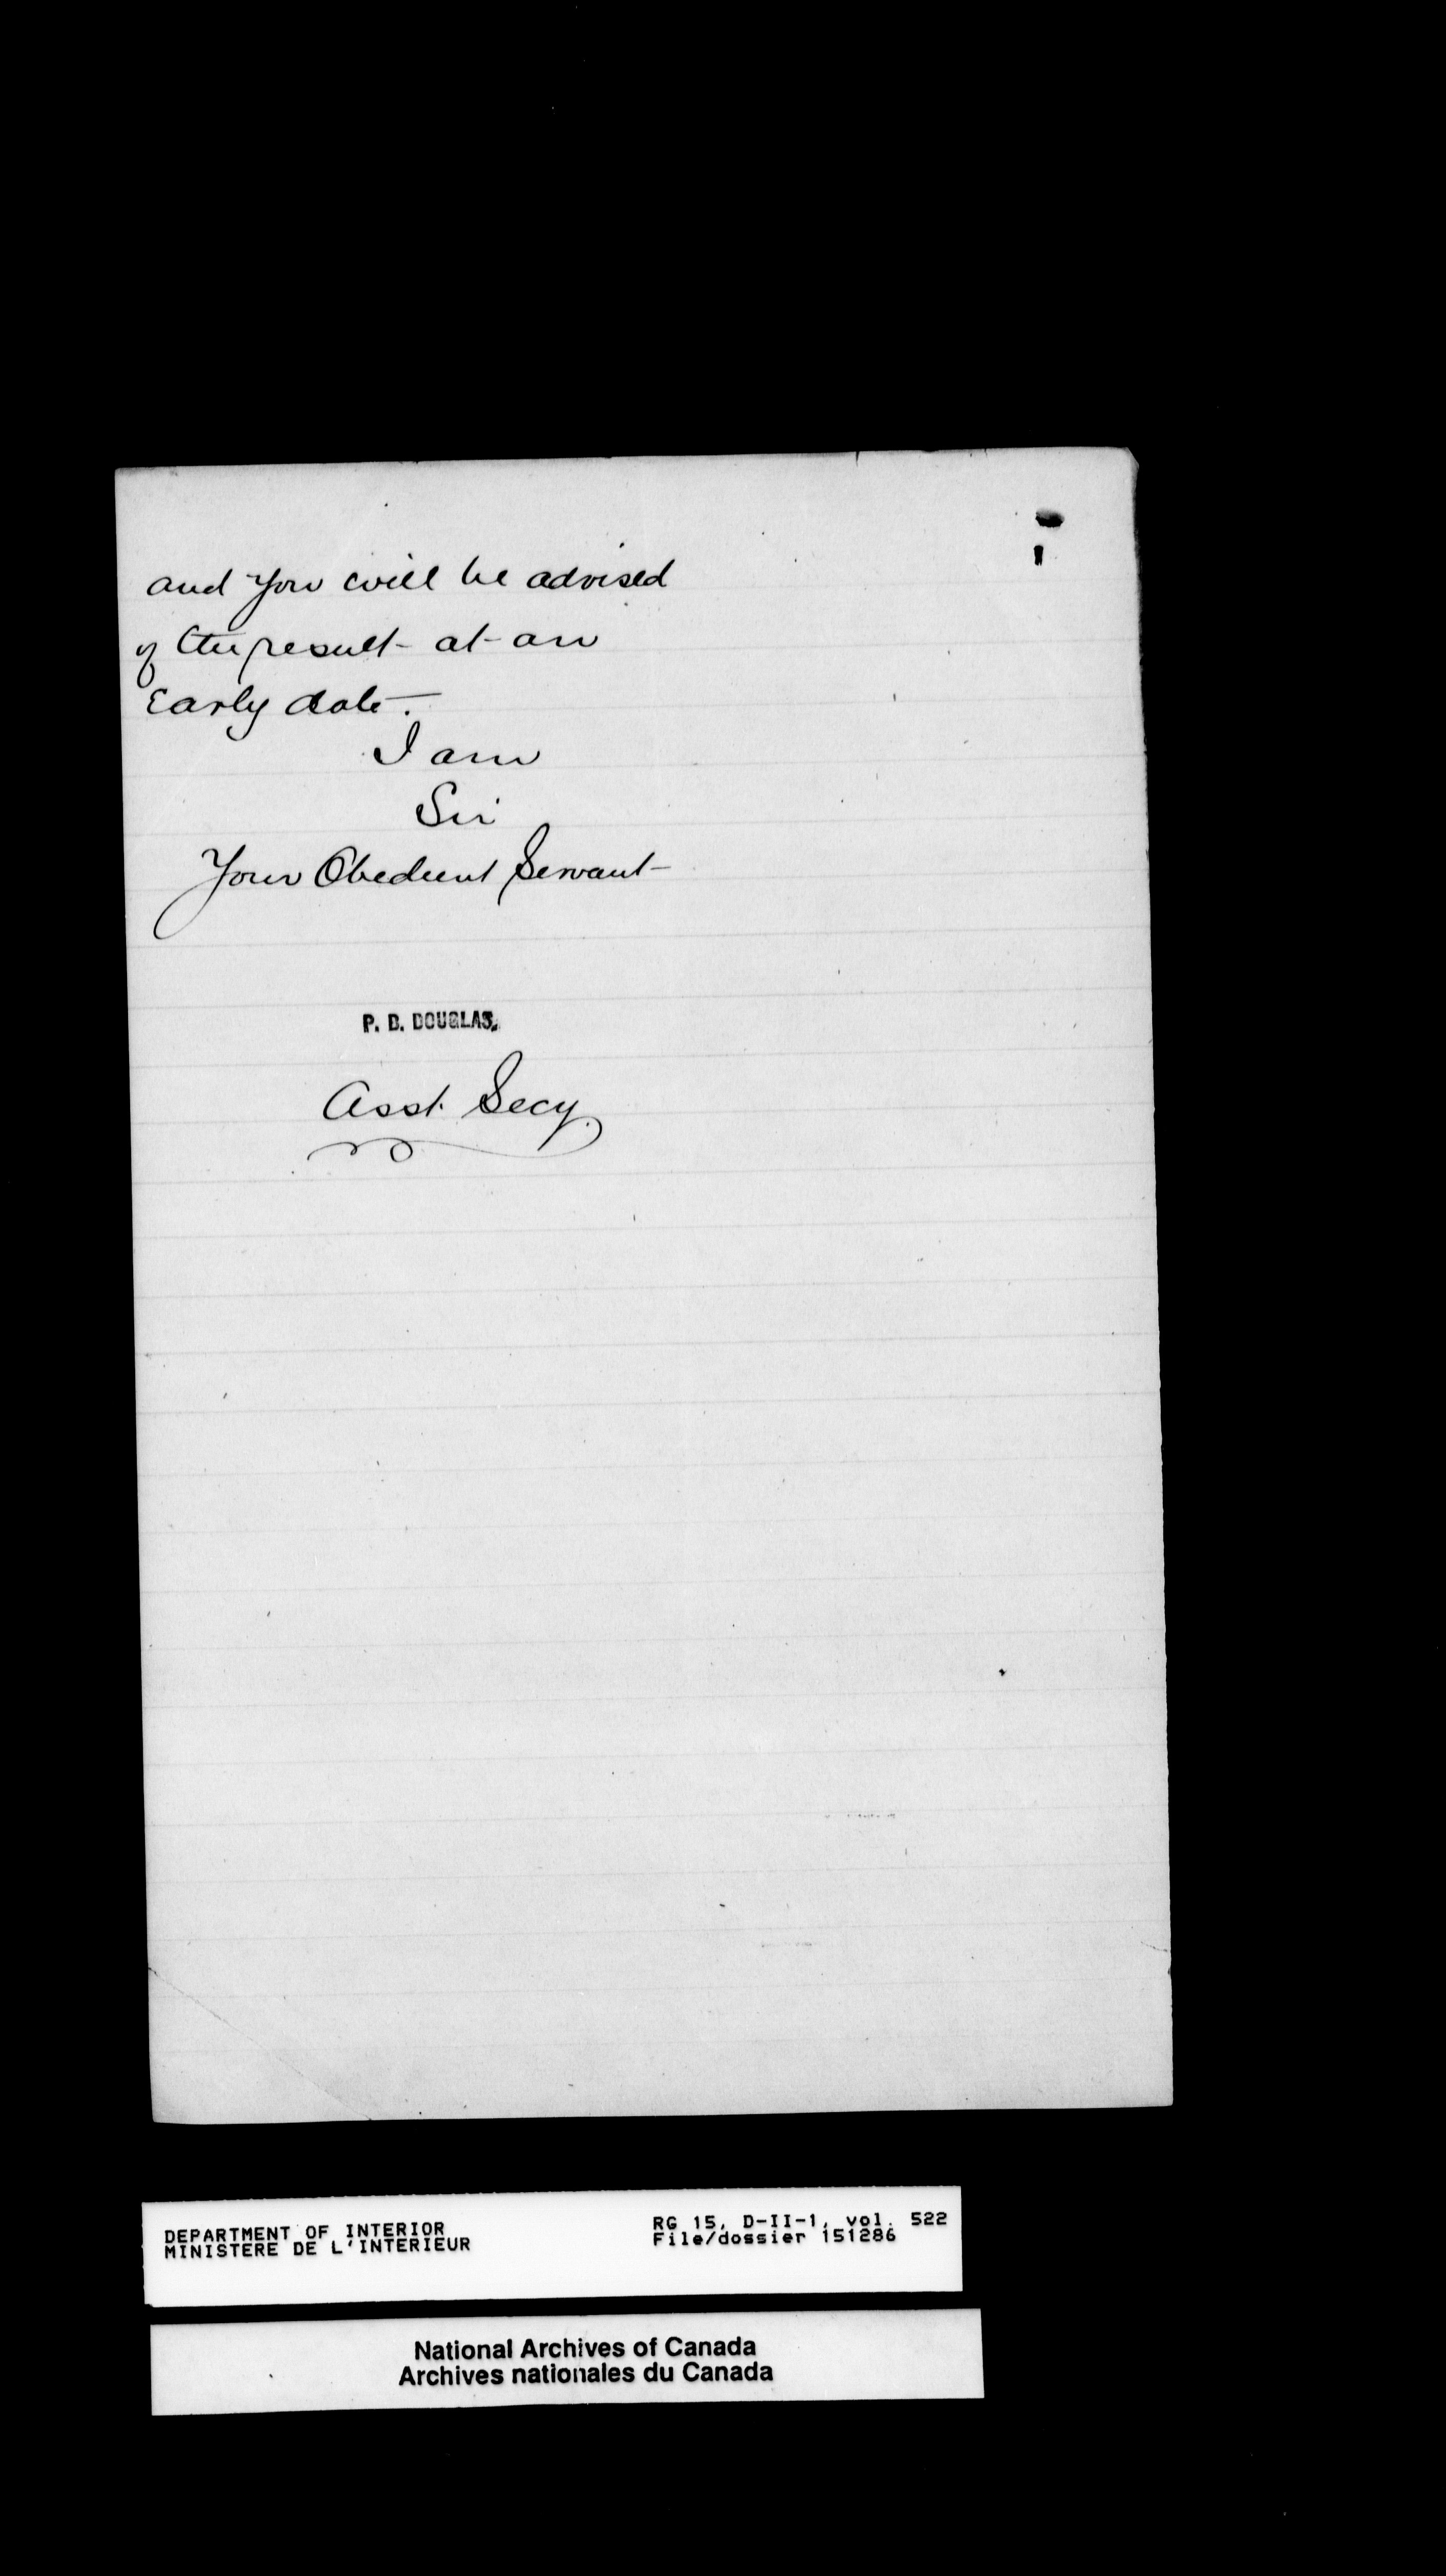 and you will be advised
of the result at an
Early date.
I am
Sir
Your Obedient Servant
P. B. DOUGLAS.
Asst. Secy.
DEPARTMENT OF INTERIOR
MINISTERE DE L'INTERIEUR
RG 15, D-II-1, vol. 522
File/dossier 151286
National Archives of Canada
Archives nationales du Canada